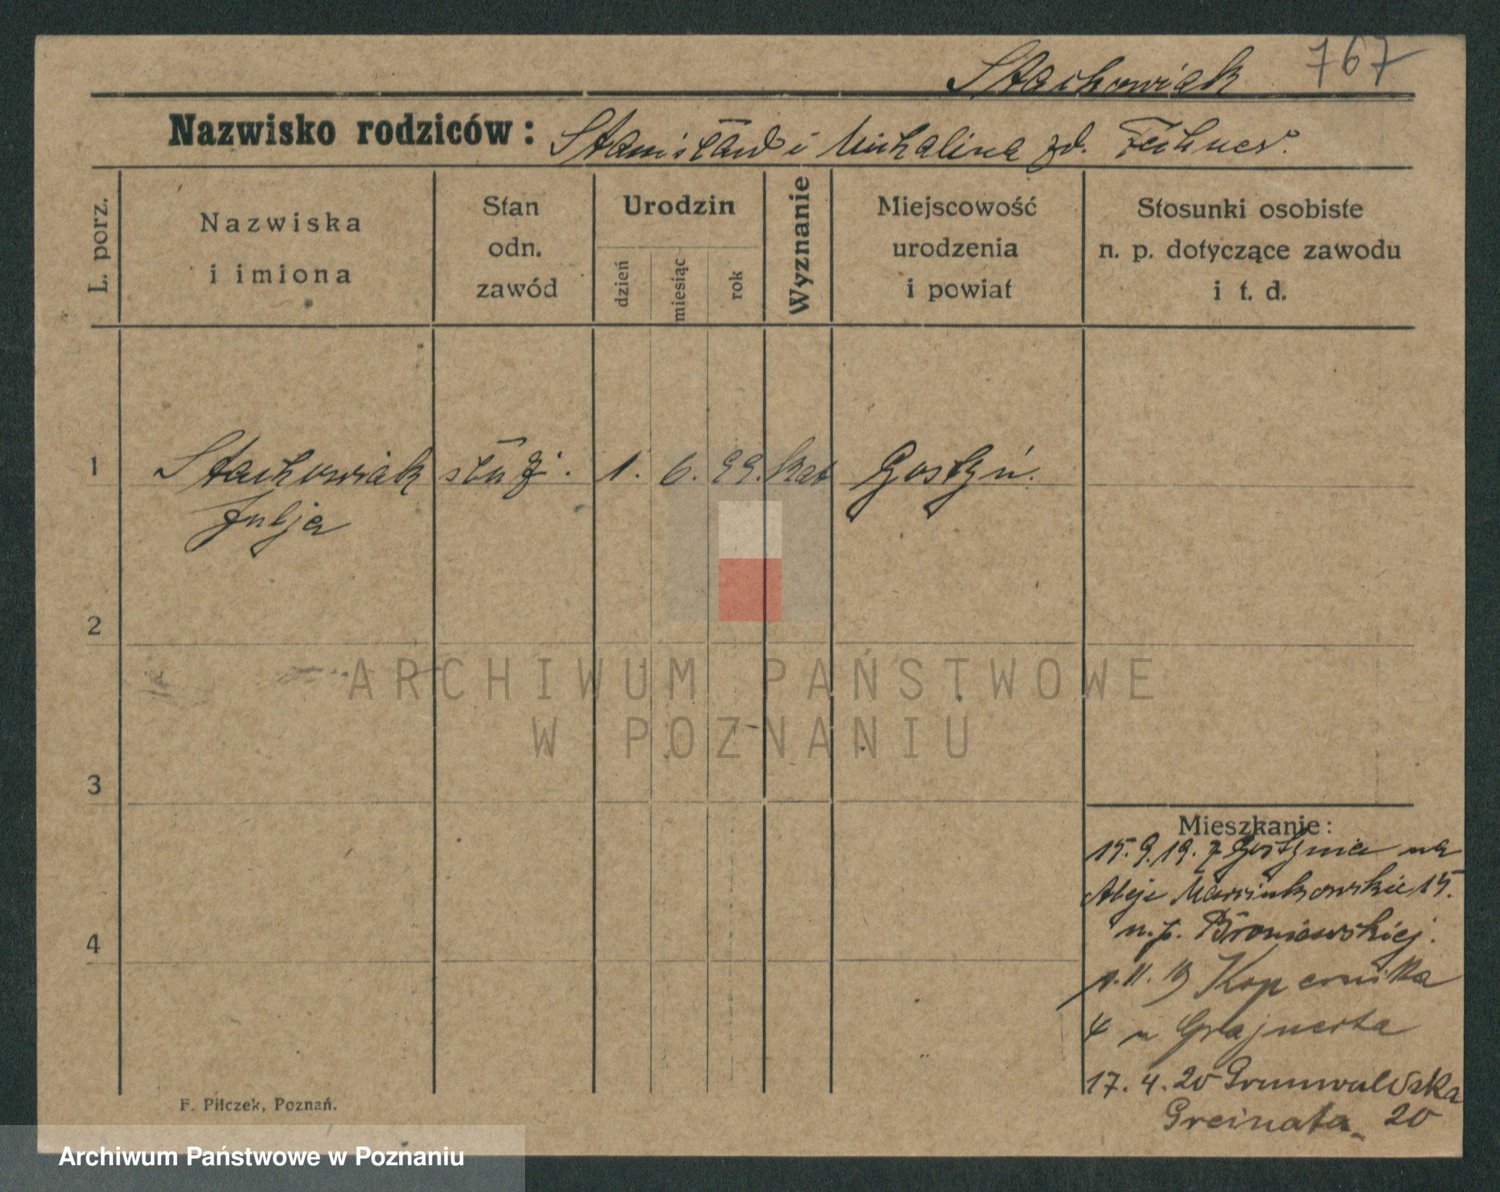 Stachowiak 767
Nazwisko rodziców: Stanisław i Michalina zd.
L. porz.
Nazwiska
i imiona
Stan
odn.
zawód
Urodzin
dzień
miesiąc
rok
Wyznanie
Miejscowość
urodzenia
i powiat
Stosunki osobiste
n. p. dotyczące zawodu
i t. d.
1 Stachowiak służ. 1. 6. 99. kat Gostyń.
Julja
2
3
4
ARCHIWUM PAŃSTWOWE
W POZNANIU
Mieszkanie:
15. 9. 19. z Gostynia na
Aleje Marcinkowskie 15.
u. p. Broniewskiej.
1. 11. 19 Kopernika
4 u Grajnerta
17. 4. 20 Grunwaldzka
Greinata 20
F. Piłczek, Poznań.
Archiwum Państwowe w Poznaniu